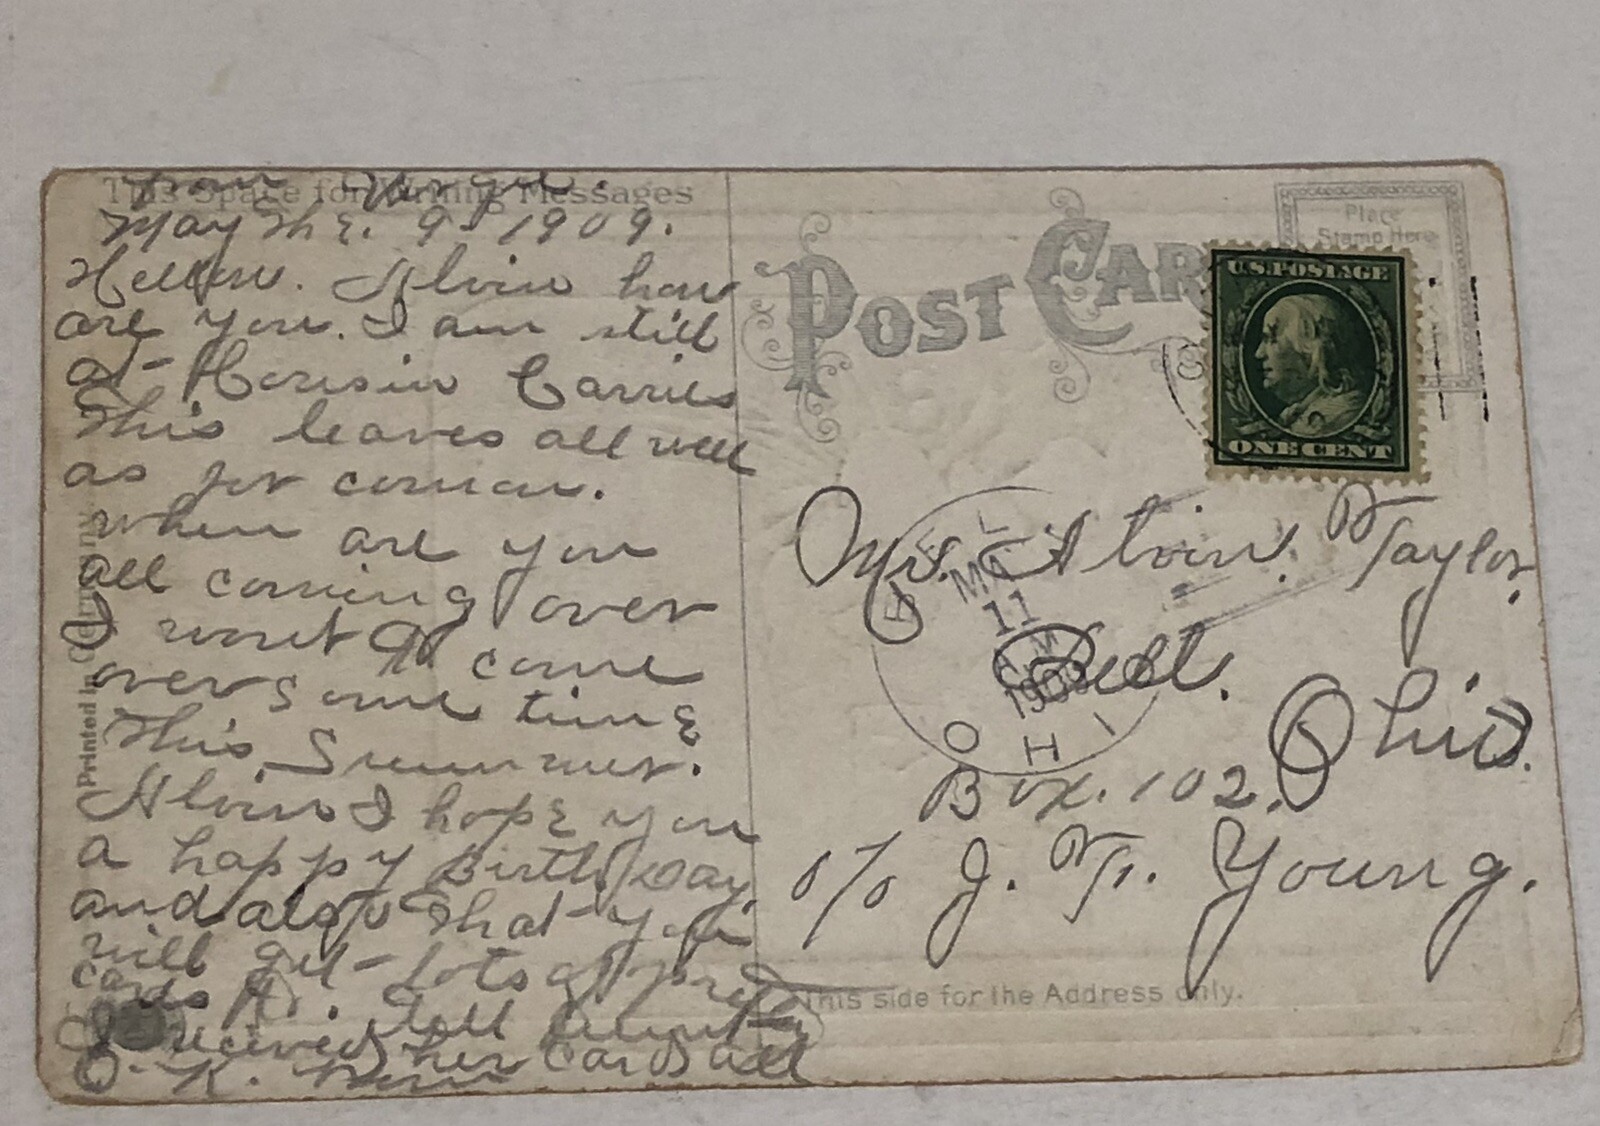 This Space for Writing Messages
from
May The. 9 - 1909.
Hellow. Alvin how
are you. I am still
at - Carries
This leaves all well
as for comon.
when are you
all coming over
I want to come
over some time
This Summer.
Alvin I hope you
a happy Birth Day
and also That you
will get - lots of
cards Tell
received her card all
O. K.
Printed in Germany
POST CARD
Place
Stamp Here
U.S. POSTAGE
ONE CENT
Mr. Alvin. Taylor.
Ohio.
Box. 102.
c/o J. T. Young.
MAY
11
A.M.
OHIO
This side for the Address only.